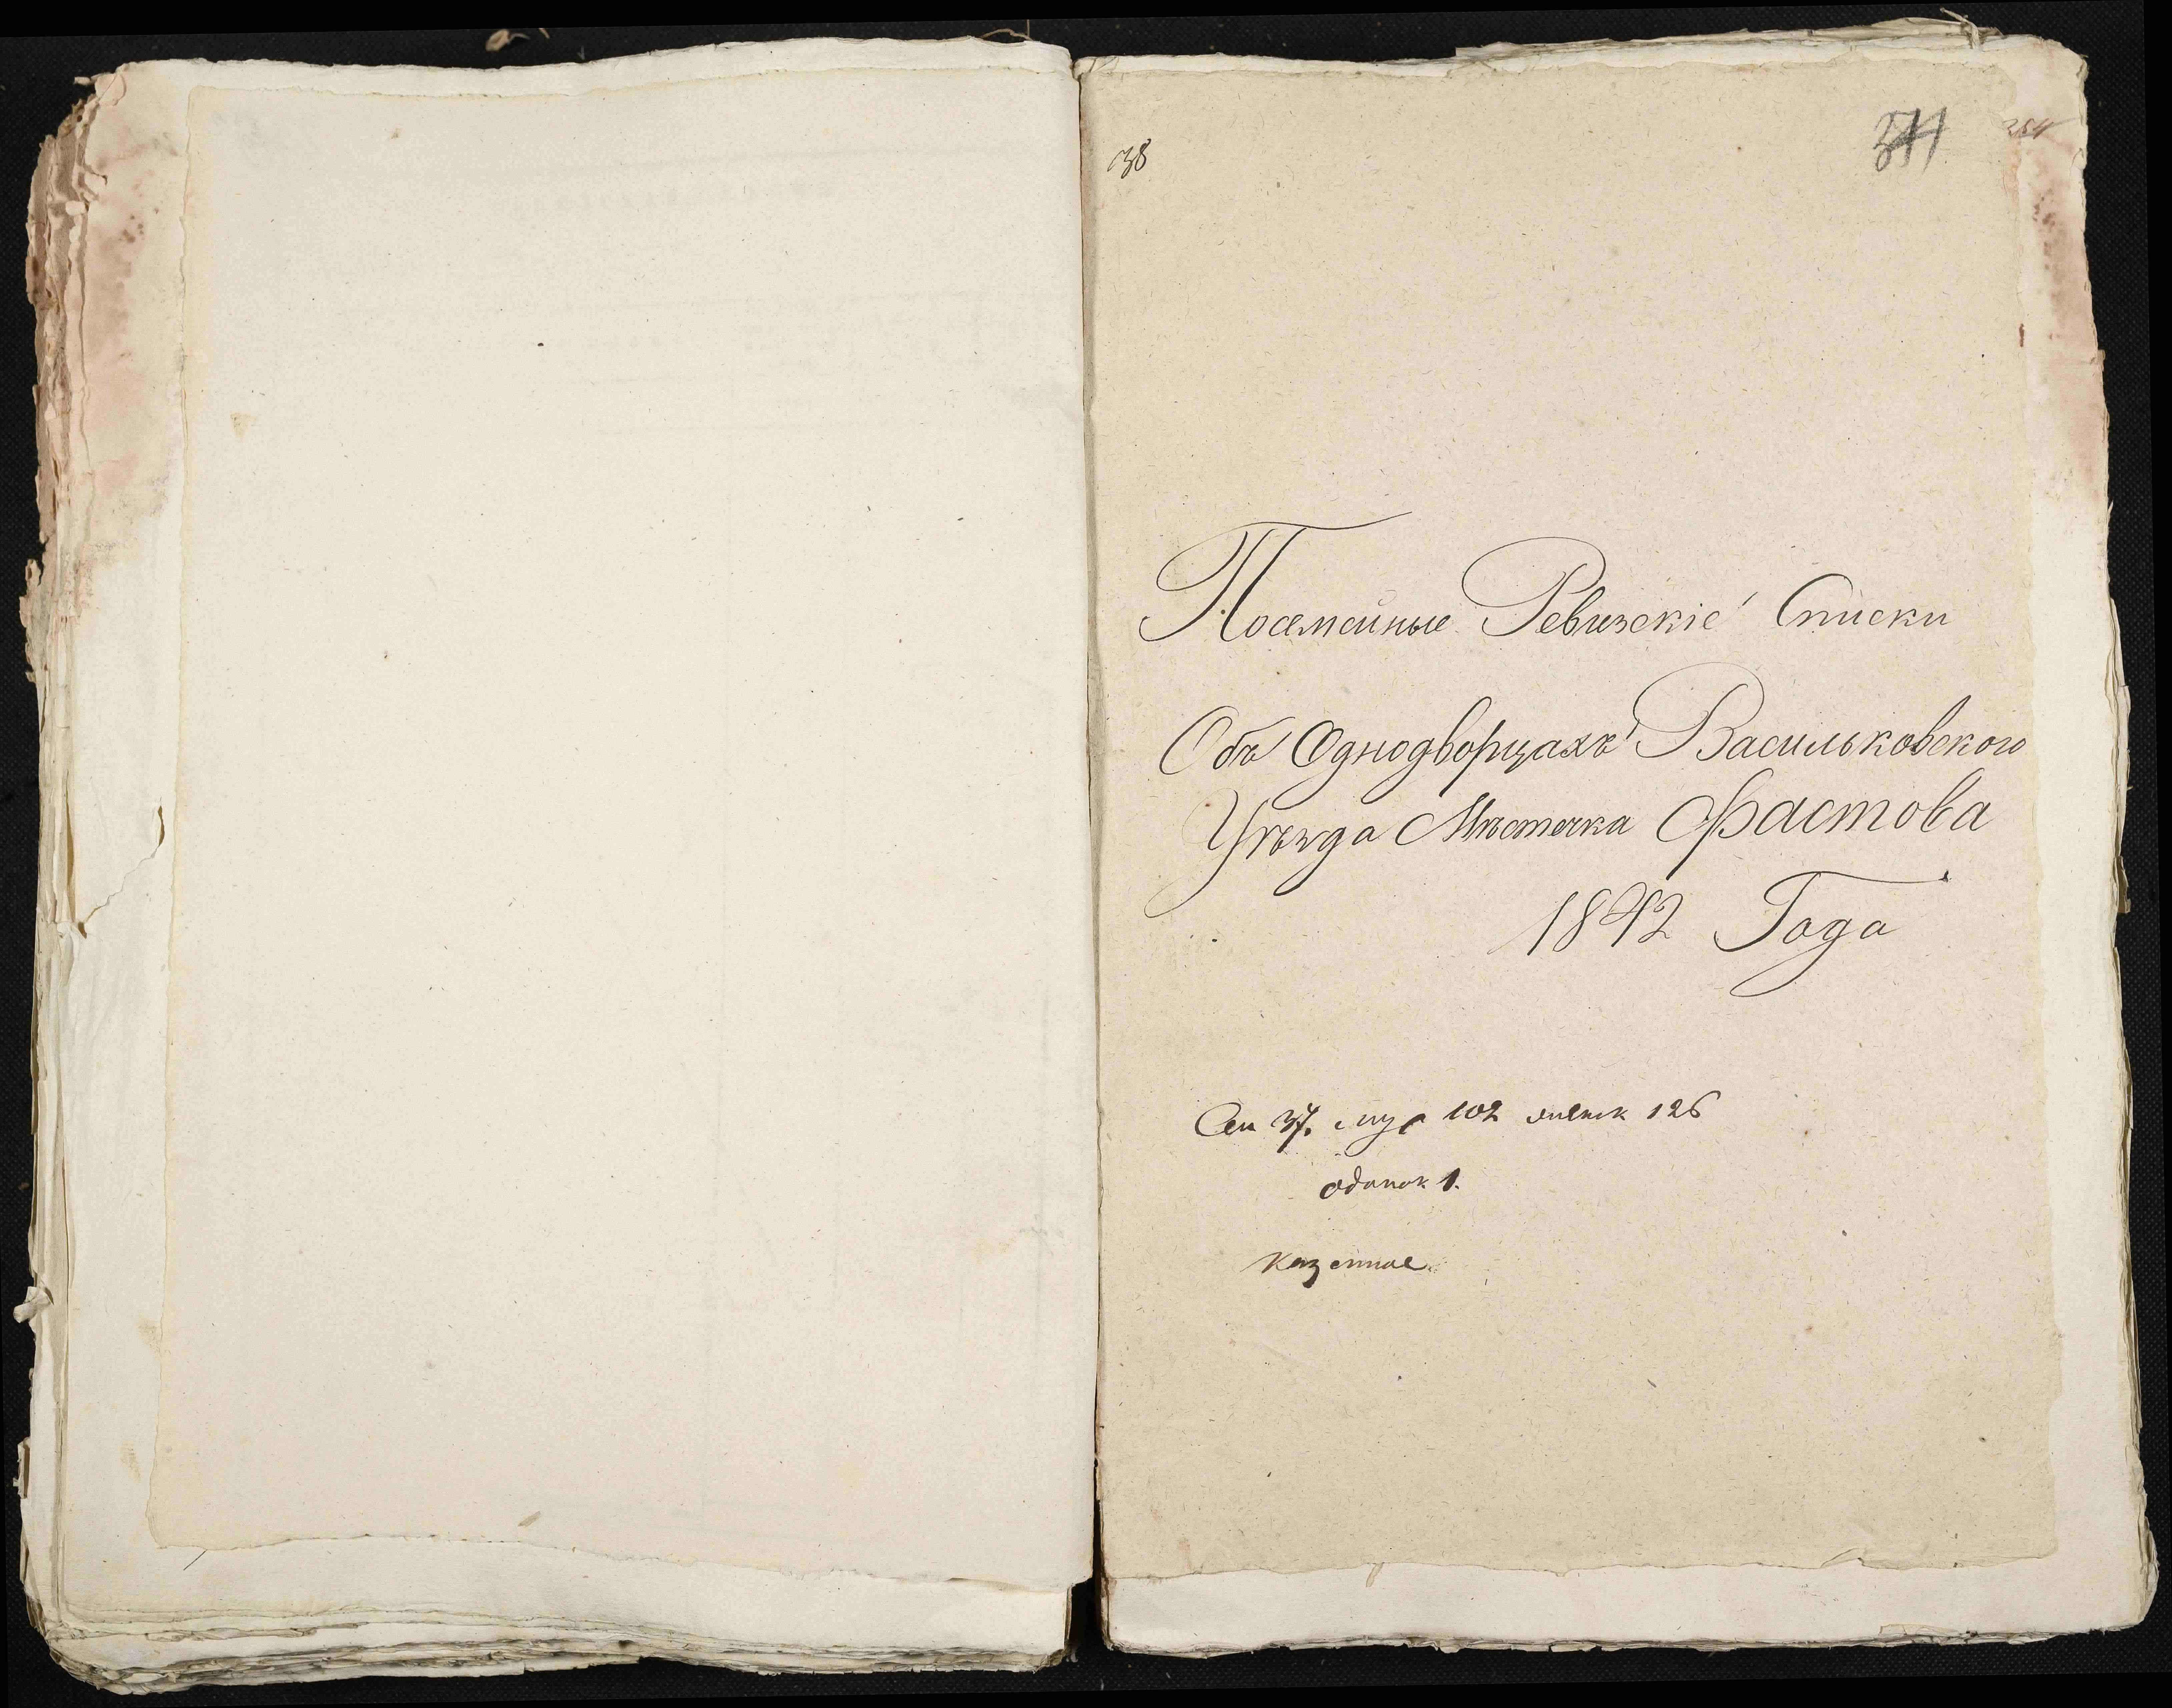 38
311
Посемейные Ревизскіе Списки
Объ Однодворцахъ Васильковского
Уѣзда Мѣстечка Фастова
1842 Года
Сем 37. муж 102 женск 126
одинок 1.
казенное